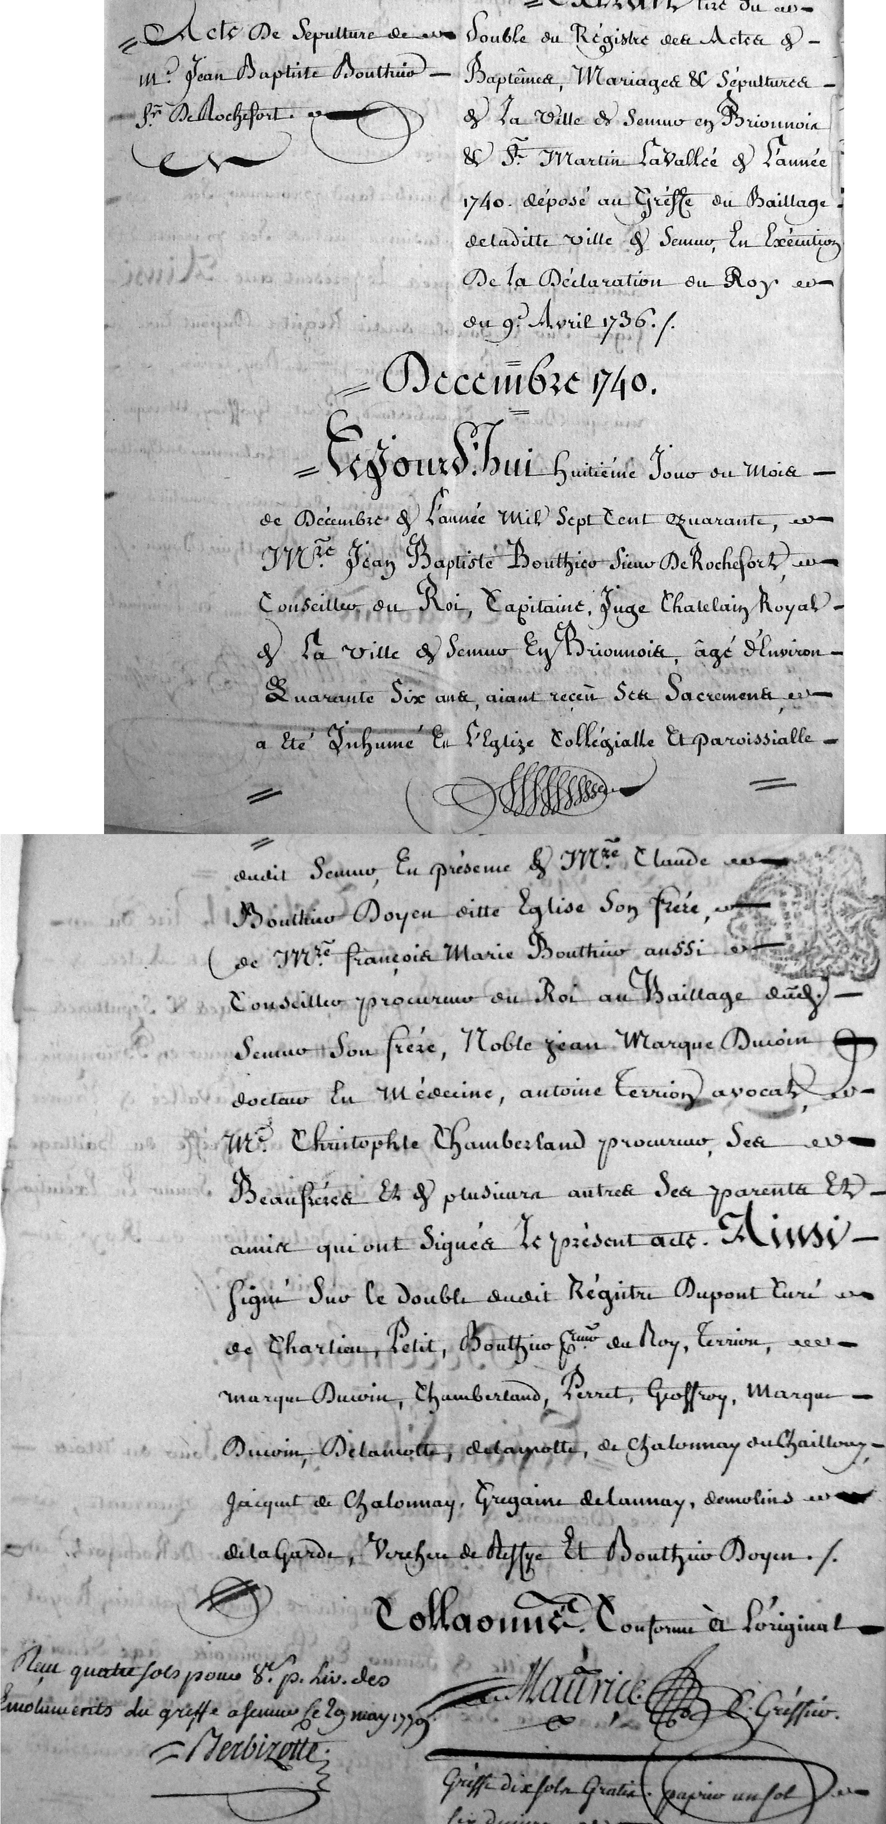 Acte De Sepulture de
Me. Jean Baptiste Bouthier
Sr. De Rochefort.
Extrait tiré du
Double du Régistre des Actes de
Baptêmes, Mariages & Sépultures
de La Ville de Semur en Brionnois
& St. Martin LaVallée de L'année
1740. déposé au Gréffe du Baillage
deladitte ville de Semur, En Exécution
De la Déclaration du Roy
du 9e. Avril 1736./.
Decembre 1740.
Cejourd'hui huitiéme Jour du Mois
de Décembre de L'année Mil Sept Cent Quarante,
Mre. Jean Baptiste Bouthier Sieur De Rochefort,
Conseiller du Roi, Capitaine, Juge Chatelain Royal
de La Ville de Semur En Brionnois, âgé d'Environ
Quarante Six ans, aiant reçeu Ses Sacremens,
a Eté Inhumé En L'Eglize Collégialle Et paroissialle
dudit Semur, En présence de Mre. Claude
Bouthier Doyen ditte Eglise Son frére,
de Mre. françois Marie Bouthier aussi
Conseiller procureur du Roi au Baillage dud.
Semur Son frére, Noble jean Marque Ducoin
docteur En Médecine, antoine Terrion avocat,
Me. Christophle Chamberland procureur, Ses
Beaufréres Et de plusieurs autres Ses parents Et
amis qui ont Signés Le présent acte. Ainsi
signé Sur le double dudit Régitre Dupont Curé
de Charlieu, Petit, Bouthier du Roy, Terrion,
marque Ducoin, Chamberland, Perret, Geoffroy, Marque
Ducoin, Delamotte, delamotte, de Chalonnay du Chailloux,
Jacquet de Chalonnay, Gregaine delaunay, demolins
de la Garde, Verchere de Reffye Et Bouthier Doyen./.
Collaonné. Conforme à L'original
Reçu quatre sols pour 8s. p. Liv. des
Emoluments du greffe a semur le 29 may 1779.
Maurice C. Gréffier.
Berbizotte.
Gréffe dix sols Gratis. papier un sol
six deniers